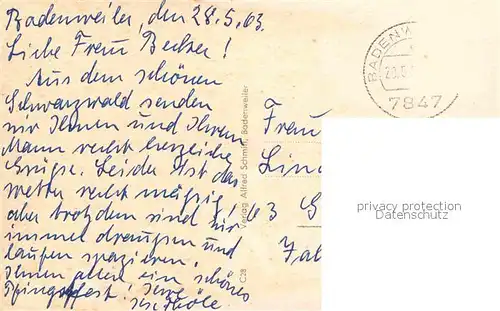 Badenweiler, den 28.5.63.
Liebe Frau Becker!
Aus dem schönen
Schwarzwald senden
wir Ihnen und Ihrem
Mann recht herzliche
Grüße. Leider ist das
Wetter recht mäßig,
aber trotzdem sind wir
immer draußen und
laufen spazieren.
Ihnen allen ein schönes
Pfingstfest!
Verlag Alfred Schmitt, Badenweiler
C28
BADENW
28.5.
7847
Frau
Lin
63 G
privacy protection
Datenschutz